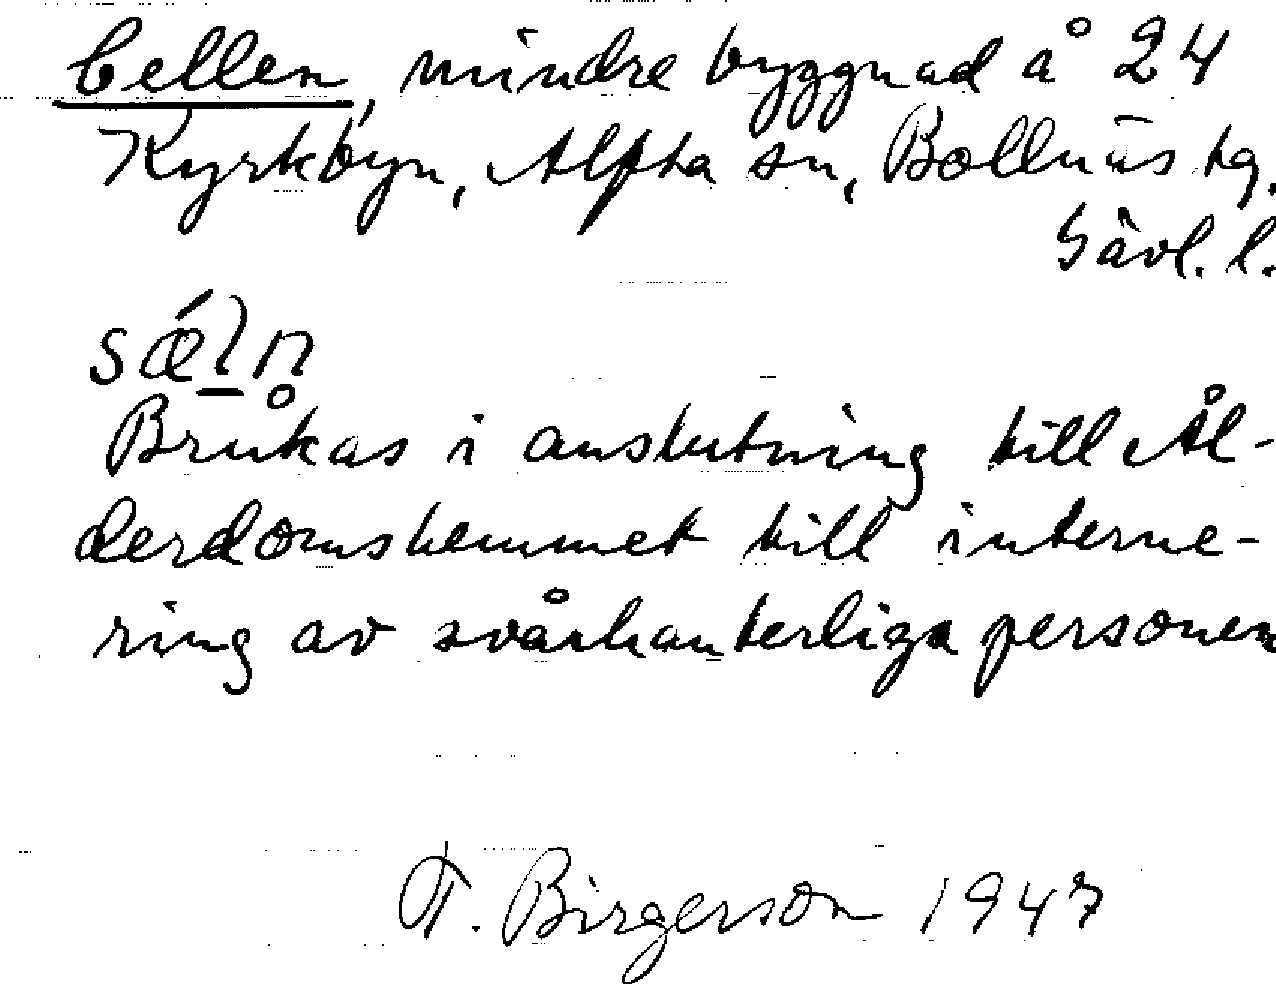 Cellen, mindre byggnad å 24
Kyrkbyn, Alfta sn, Bollnäs tg.
Gävl. l.
sǽln
Brukas i anslutning till Ål-
derdomshemmet till interne-
ring av svårhanterliga personer
F. Birgerson 1947